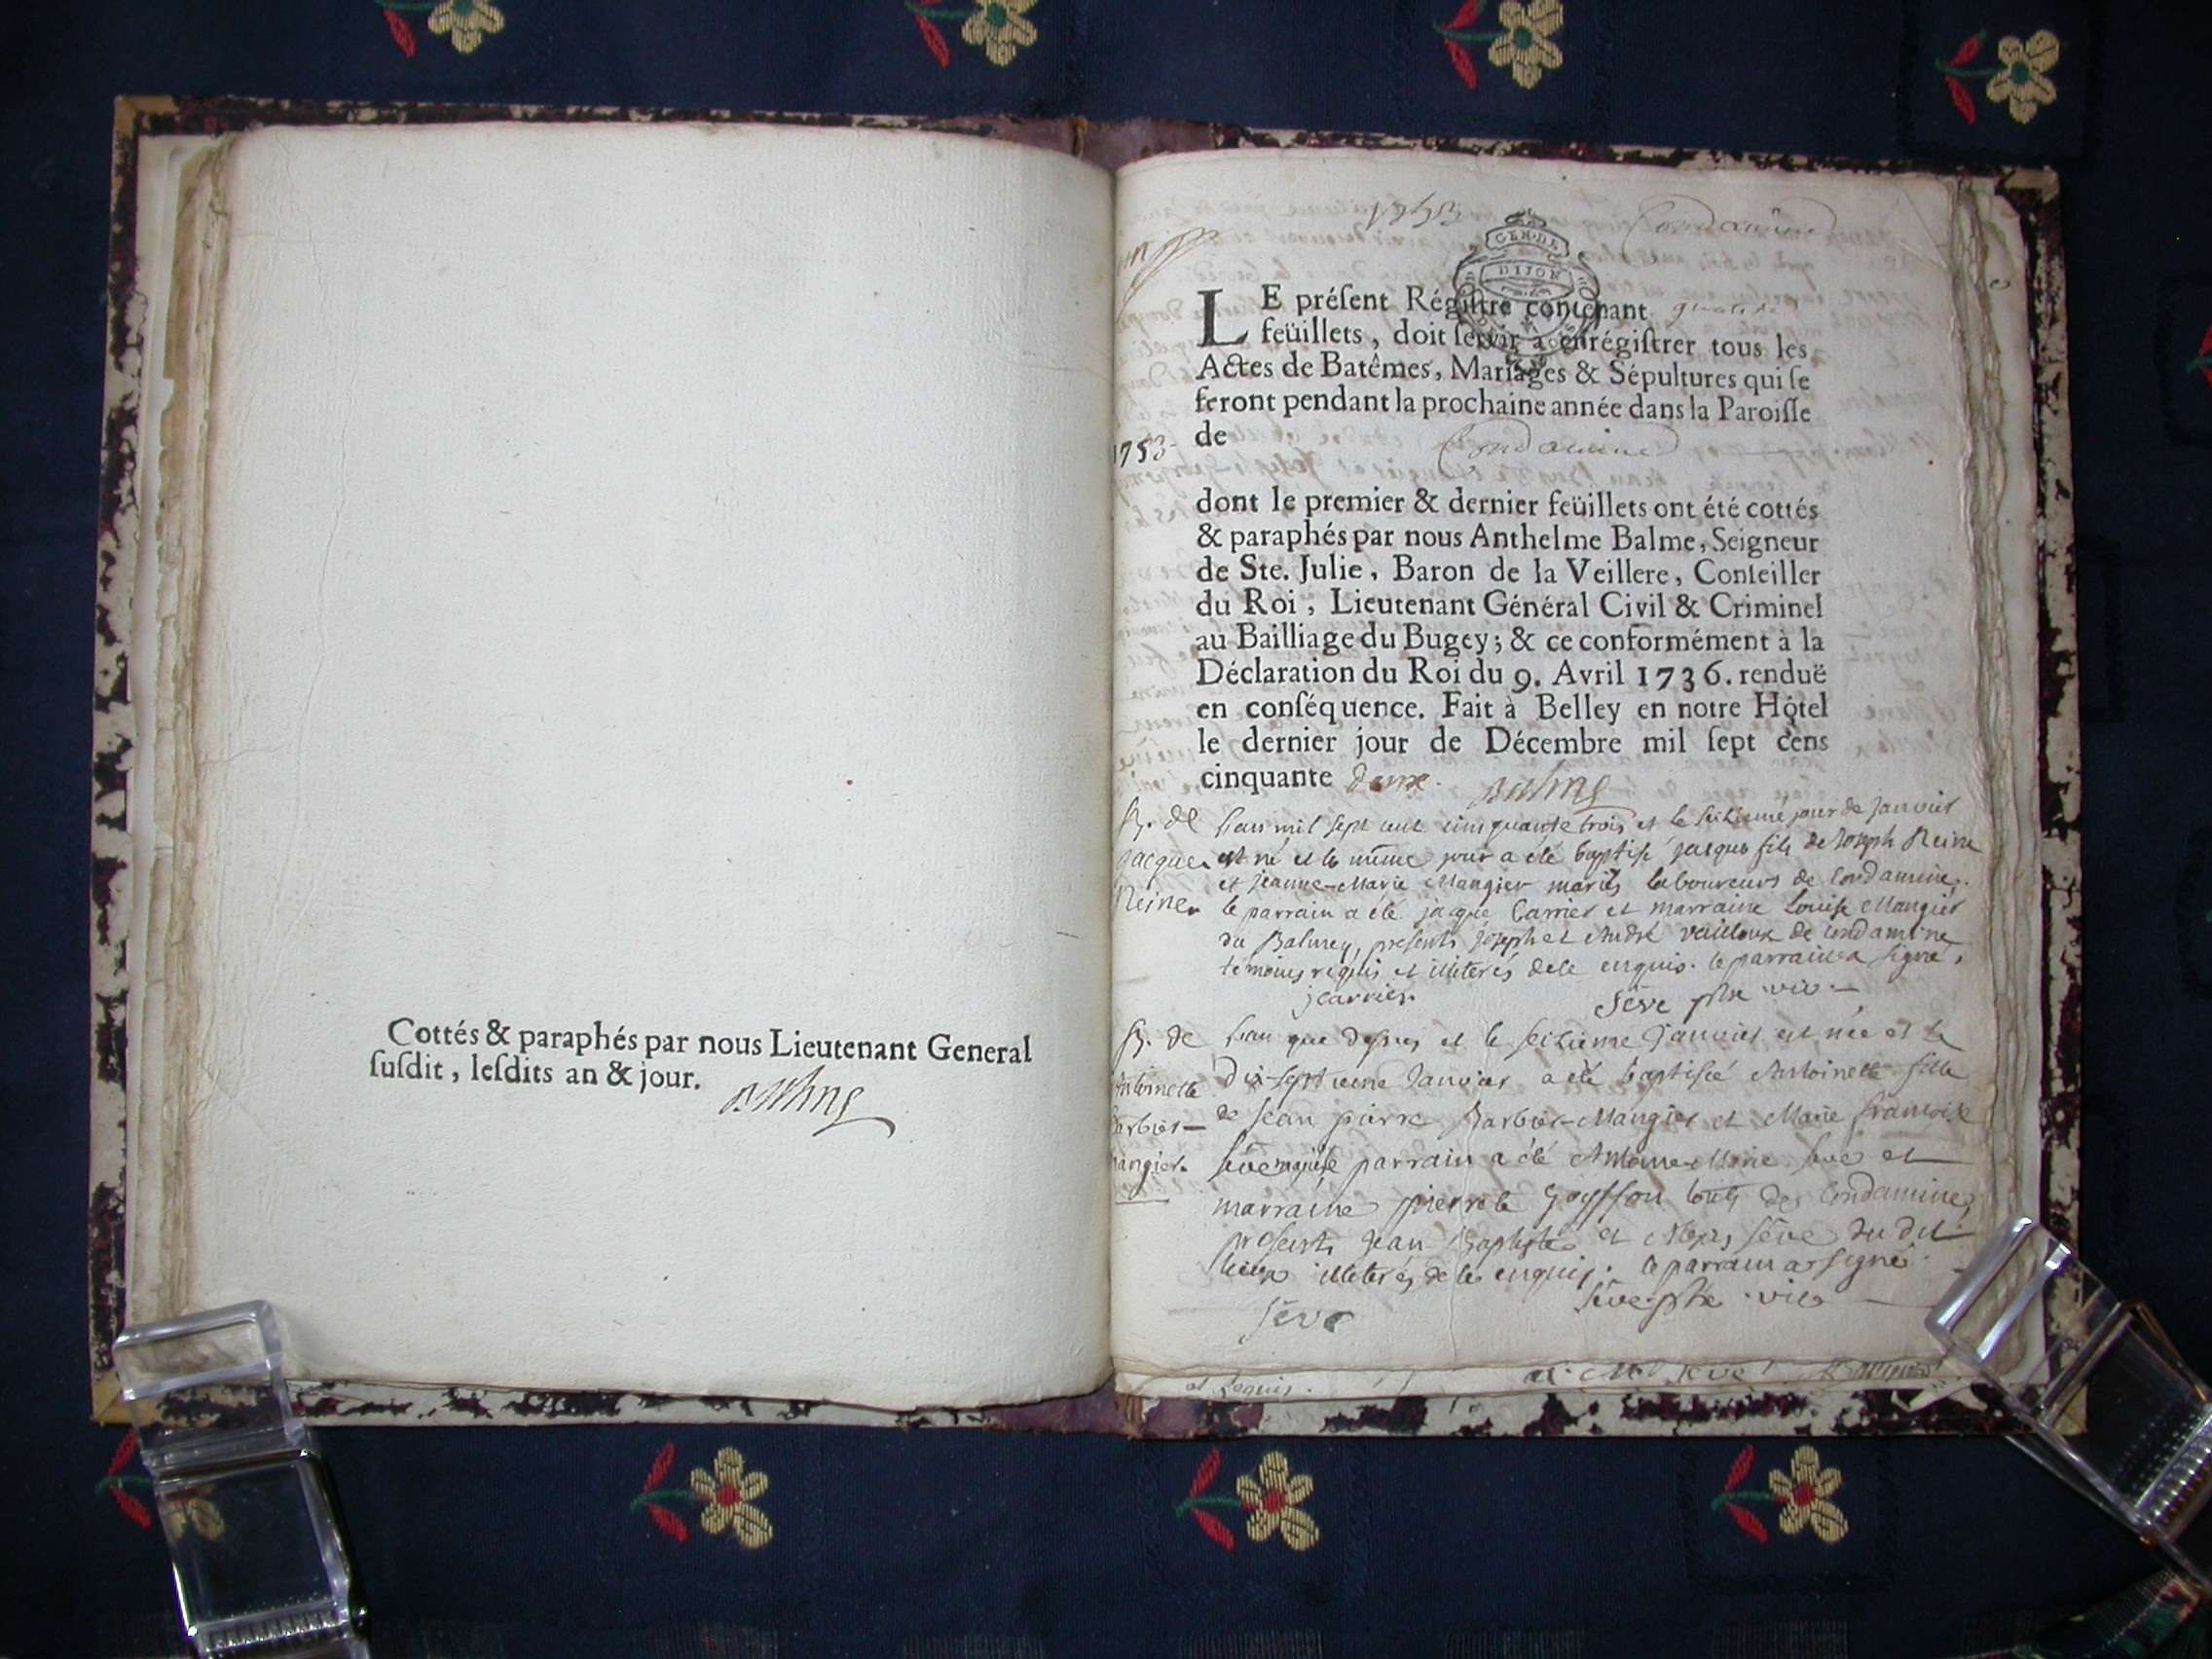 Cottés & paraphés par nous Lieutenant General
ſuſdit, leſdits an & jour.
Balme
1753
Condamine
GEN. DE
DIJON
LE préſent Régiſtre contenant quatre
feüillets, doit ſervir à enrégiſtrer tous les
Actes de Batêmes, Mariages & Sépultures qui ſe
feront pendant la prochaine année dans la Paroiſſe
1753
de Condamine
dont le premier & dernier feüillets ont été cottés
& paraphés par nous Anthelme Balme, Seigneur
de Ste. Julie, Baron de la Veillere, Conſeiller
du Roi, Lieutenant Général Civil & Criminel
au Bailliage du Bugey; & ce conformément à la
Déclaration du Roi du 9. Avril 1736. renduë
en conſéquence. Fait à Belley en notre Hôtel
le dernier jour de Décembre mil ſept cens
cinquante deux. Balme
B. de
Jacque
Reine.
L'an mil sept cent cinquante trois et le seizieme jour de Janvier
est né et le même jour a été baptisé jacque fils de Joseph Reine
et jeanne-Marie Mangier mariés laboureurs de Condamine.
le parrain a été jacque Carrier et marraine Louise Mangier
du Balmey, presents Joseph et André vailloux de Condamine
témoins requis et illiterés de ce enquis. le parrain a signé,
jcarrier. Séve ptre vic
B. de
Antoinette
Barbier-
Mangier.
L'an que dessus et le seizieme Janvier est née et le
Dix-septieme Janvier a été baptisée Antoinette fille
de Jean pierre Barbier-Mangier et Marie françoise
Séve parrain a été Antoine-Marie Seve et
marraine pierrete Goyffon touts de Condamine,
presents Jean Baptiste et Séve du dit
lieux illiterés de ce enquis. le parrain a signé
Séve Séve ptre vic
et requis.